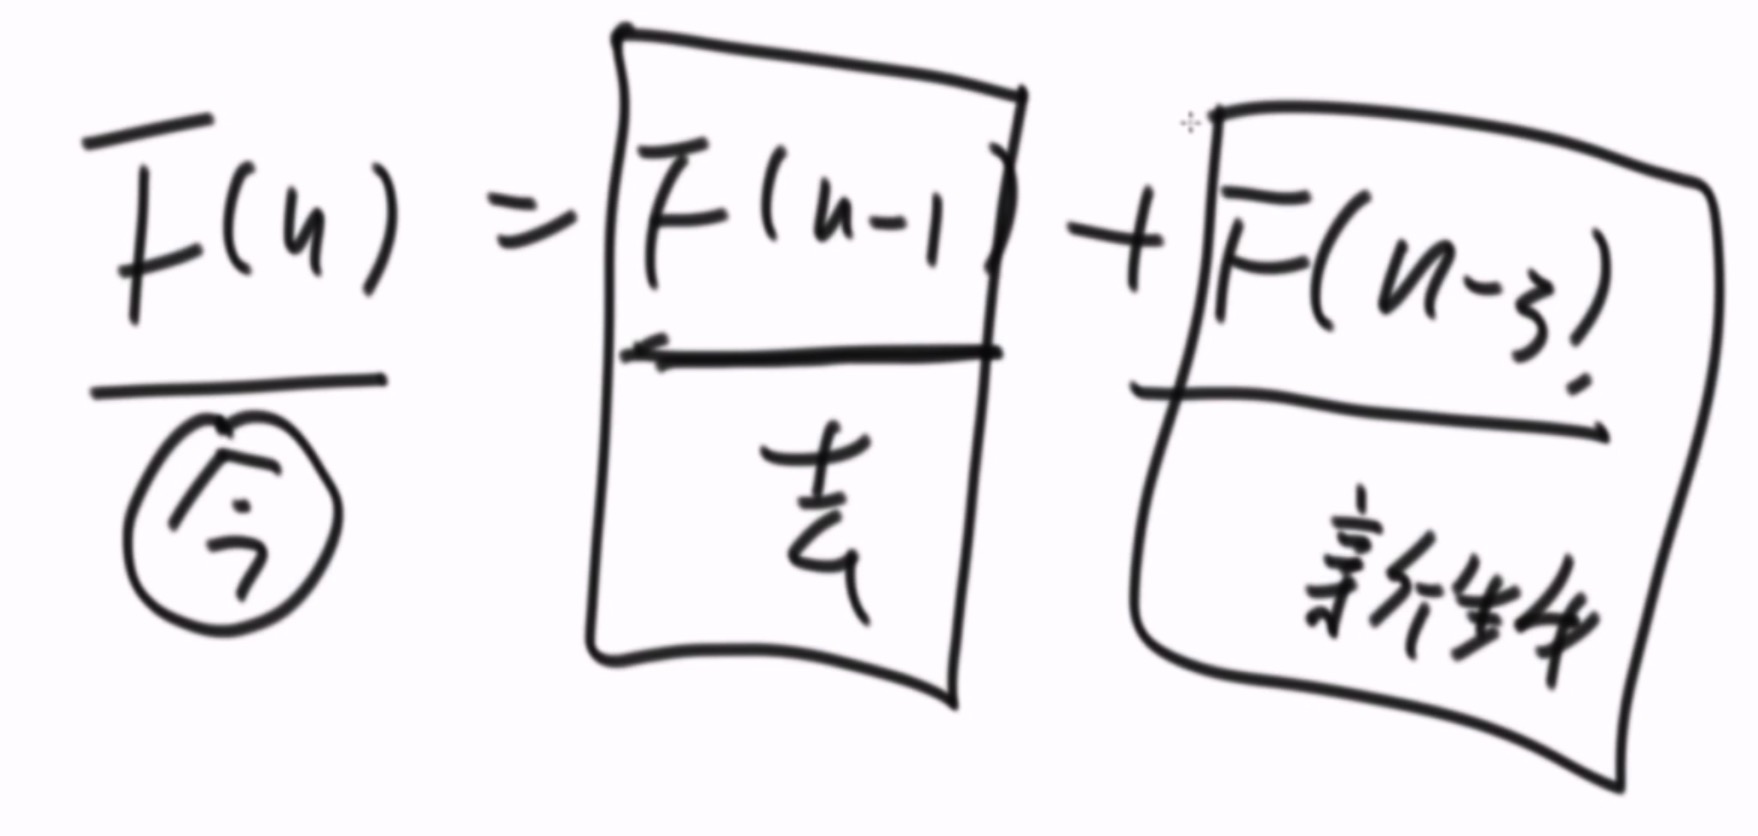 F(n) = F(n-1) + F(n-3)
今 去 新